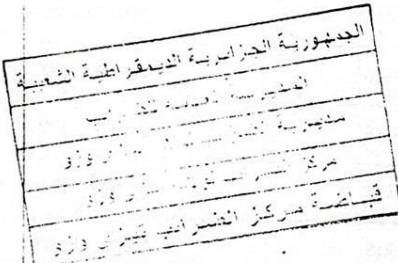 الجمهورية الجزائرية الديمقراطية الشعبية
المديرية العامة للضرائب
مديرية الضرائب تيزي وزو
مركز الضرائب تيزي وزو
قباضة مركز الضرائب تيزي وزو